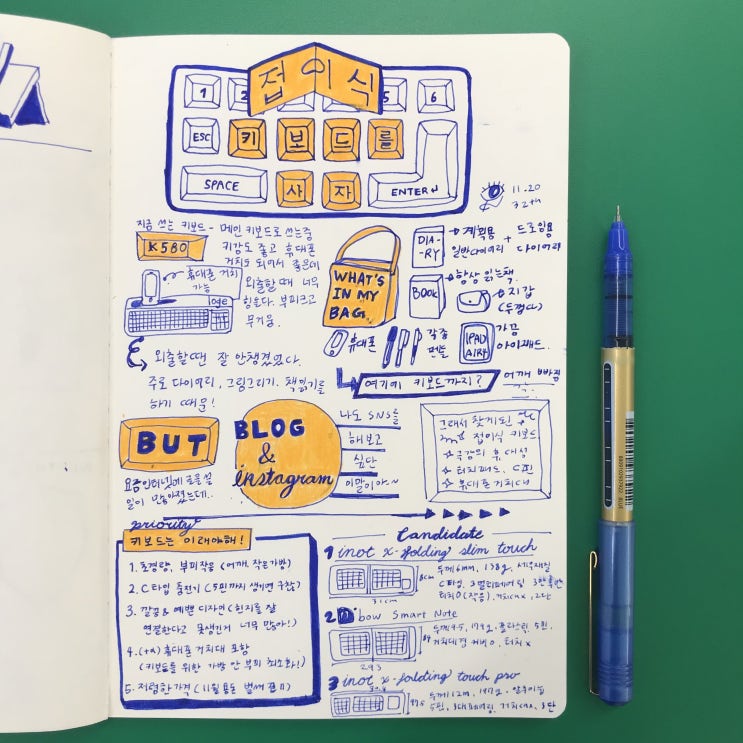 접이식
1 2 5 6
ESC 키 보 드 를
SPACE 사 자 ENTER↵
11.20
32th
지금 쓰는 키보드 - 메인 키보드로 쓰는중
K580
키감도 좋고 휴대폰
거치도 되어서 좋은데
휴대폰 거치
가능
외출할때 너무
힘들다. 부피크고
무거움.
외출할땐 잘 안챙겼었다.
주로 다이어리, 그림그리기, 책읽기를
하기 때문!
WHAT'S
IN MY
BAG
DIA-
-RY
계획용 + 드로잉용
일반다이어리 다이어리
BOOK
항상 읽는책
지갑
(두껍다)
휴대폰
각종
펜들
IPAD
AIR4
가끔
아이패드.
여기에 키보드까지?
어깨 빠짐
BUT
요즘 인터넷에 글을 쓸
일이 많아졌는데..
BLOG
&
instagram
나도 SNS를
해보고
싶단
이말이야~
그래서 찾게된
접이식 키보드
극강의 휴대성
터치패드, C핀
휴대폰거치대
priority
키보드는 이래야해!
1. 초경량, 부피작음 (어깨, 작은가방)
2. C타입 충전기 (5핀까지 생기면 귀찮)
3. 깔끔 & 예쁜 디자인 (힌지를 잘
연결한다고 못생긴게 너무 많아!)
4. (+a) 휴대폰 거치대 포함
(키보드를 위한 가방 안 부피 최소화!)
5. 저렴한가격 (11월 용돈 벌써 끝!!)
Candidate
1 inot x-folding slim touch
두께6mm, 138g,
C타입, 3멀티페어링
터치O(작음), 거치대x, 2단
31cm
2 bow Smart Note
179g, 플라스틱, 5핀,
거치대겸 커버O, 터치x
29.3
3 inot x-folding touch pro
5핀, 3대페어링, 거치대x, 3단